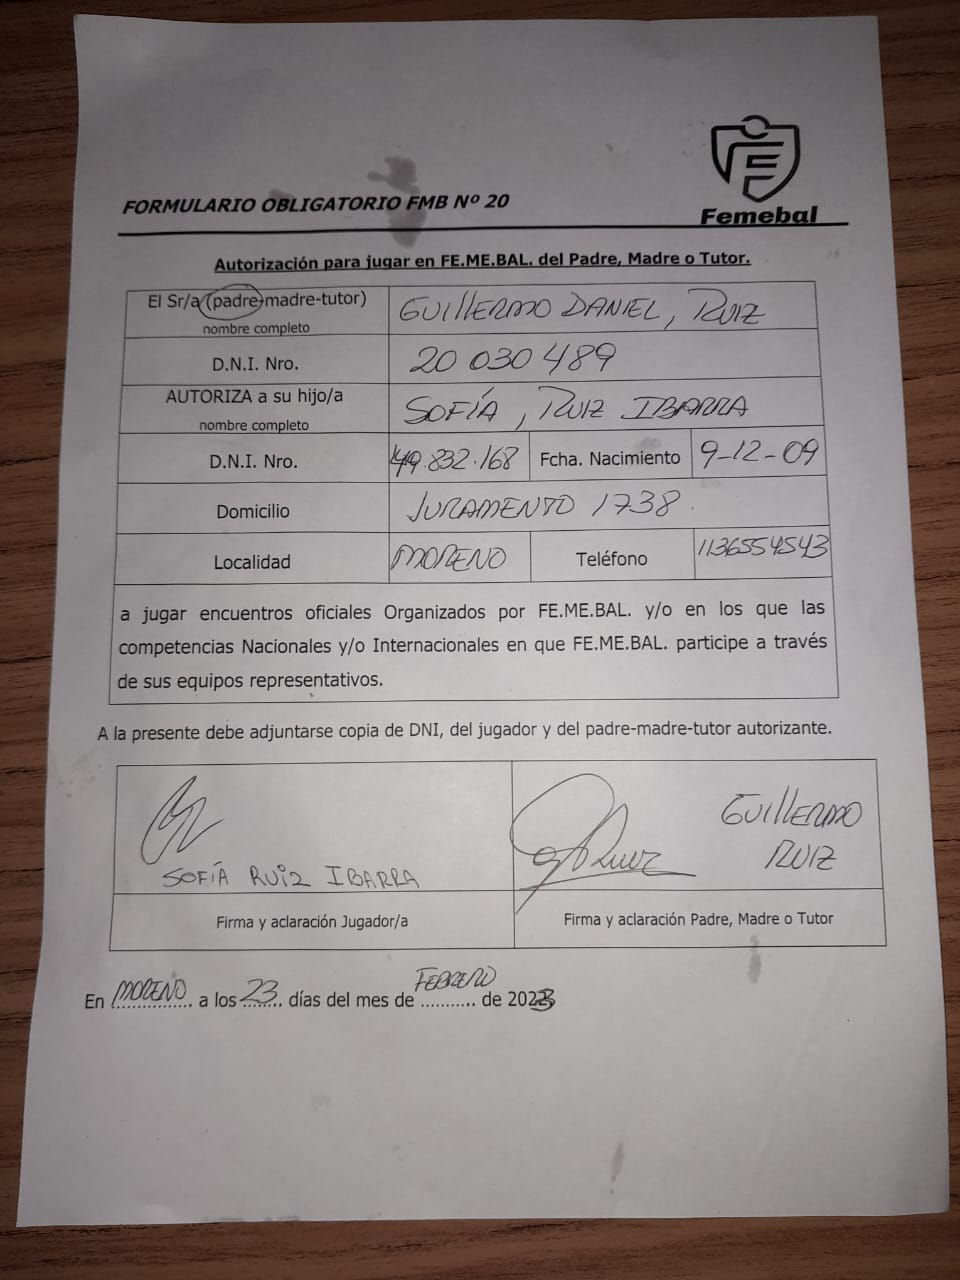 FORMULARIO OBLIGATORIO FMB Nº 20
Femebal
Autorización para jugar en FE.ME.BAL. del Padre, Madre o Tutor.
El Sr/a (padre-madre-tutor)
nombre completo
GUILLERMO DANIEL, RUIZ
D.N.I. Nro.
20 030 489
AUTORIZA a su hijo/a
nombre completo
SOFÍA, RUIZ IBARRA
D.N.I. Nro.
49.832.168
Fcha. Nacimiento
9-12-09
Domicilio
JURAMENTO 1738.
Localidad
MORENO
Teléfono
1136554543
a jugar encuentros oficiales Organizados por FE.ME.BAL. y/o en los que las
competencias Nacionales y/o Internacionales en que FE.ME.BAL. participe a través
de sus equipos representativos.
A la presente debe adjuntarse copia de DNI, del jugador y del padre-madre-tutor autorizante.
SOFÍA RUIZ IBARRA
Ruiz
GUILLERMO
RUIZ
Firma y aclaración Jugador/a
Firma y aclaración Padre, Madre o Tutor
En MORENO a los 23 días del mes de FEBRERO de 2023